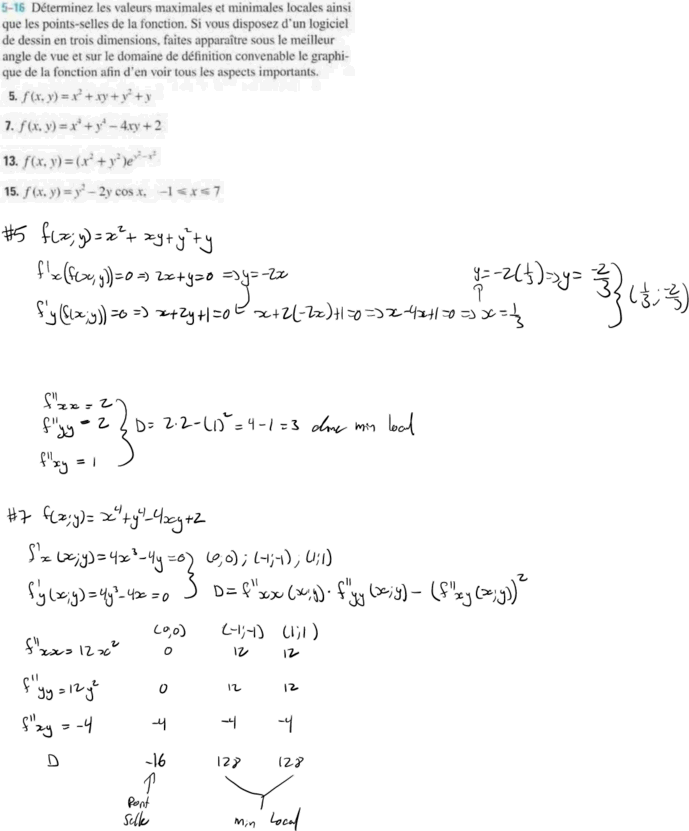 5–16 Déterminez les valeurs maximales et minimales locales ainsi
que les points-selles de la fonction. Si vous disposez d'un logiciel
de dessin en trois dimensions, faites apparaître sous le meilleur
angle de vue et sur le domaine de définition convenable le graphi-
que de la fonction afin d'en voir tous les aspects importants.
5. f(x, y) = x² + xy + y² + y
7. f(x, y) = x⁴ + y⁴ − 4xy + 2
13. f(x, y) = (x² + y²)e^(y²−x²)
15. f(x, y) = y² − 2y cos x, −1 ≤ x ≤ 7
#5 f(x;y) = x² + xy + y² + y
f'x(f(x,y))=0 => 2x+y=0 => y=-2x y=-2(1/3) => y= -2/3 } (1/3; -2/3)
f'y(f(x;y))=0 => x+2y+1=0 x+2(-2x)+1=0 => x-4x+1=0 => x=1/3
f''xx = 2
f''yy = 2 } D= 2·2-(1)² = 4-1=3 donc min local
f''xy = 1
#7 f(x;y)= x⁴+y⁴-4xy+2
f'x(x;y)=4x³-4y=0 } (0,0); (-1;-1); (1;1)
f'y(x;y)=4y³-4x=0 D= f''xx(x;y)· f''yy(x;y) - (f''xy(x;y))²
(0,0) (-1;-1) (1;1)
f''xx=12x² 0 12 12
f''yy=12y² 0 12 12
f''xy = -4 -4 -4 -4
D -16 128 128
Point
Selle min local